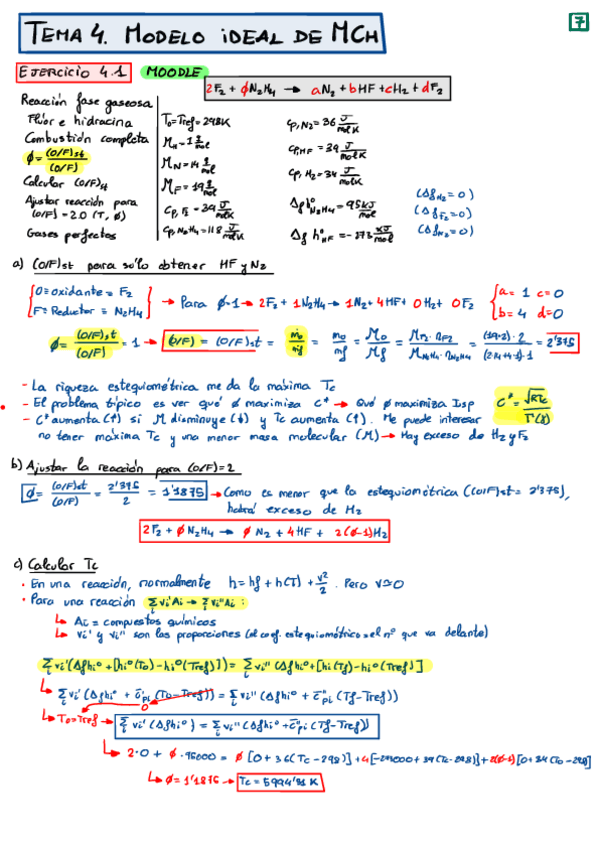 7
TEMA 4. MODELO IDEAL DE MCH
EJERCICIO 4.1 MOODLE
2F₂ + ϕN₂H₄ → aN₂ + bHF + cH₂ + dF₂
Reacción fase gaseosa
Flúor e hidracina
Combustión completa
ϕ = (O/F)st / (O/F)
Calcular (O/F)st
Ajustar reacción para
(O/F) = 2.0 (T, ϕ)
Gases perfectos
T₀ = Tref = 298K
M_H = 1 g/mol
M_N = 14 g/mol
M_F = 19 g/mol
Cp, F₂ = 39 J/molK
Cp, N₂H₄ = 118 J/molK
Cp, N₂ = 36 J/molK
Cp, HF = 39 J/molK
Cp, H₂ = 34 J/molK
Δf h°N₂H₄ = 95 kJ/mol
Δf h°HF = -273 kJ/mol
(Δf H₂ = 0)
(Δf F₂ = 0)
(Δf N₂ = 0)
a) (O/F)st para sólo obtener HF y N₂
O = oxidante = F₂
F = Reductor = N₂H₄
→ Para ϕ=1 → 2F₂ + 1N₂H₄ → 1N₂ + 4HF + 0H₂ + 0F₂
a = 1 c = 0
b = 4 d = 0
ϕ = (O/F)st / (O/F) = 1 → (O/F) = (O/F)st = ṁo/ṁf = mo/mf = Mo/Mf = M_F₂·n_F₂ / M_N₂H₄·n_N₂H₄ = (19·2)·2 / (2·14+4·1)·1 = 2'375
- La riqueza estequiométrica me da la máxima Tc
- El problema típico es ver qué ϕ maximiza C* → Qué ϕ maximiza Isp
- C* aumenta (↑) si M disminuye (↓) y Tc aumenta (↑). Me puede interesar
no tener máxima Tc y una menor masa molecular (M) → Hay exceso de H₂ y F₂
C* = √RTc / Γ(γ)
b) Ajustar la reacción para (O/F)=2
ϕ = (O/F)st / (O/F) = 2'375 / 2 = 1'1875 → Como es menor que la estequiométrica ((O/F)st = 2'375),
habrá exceso de H₂
2F₂ + ϕN₂H₄ → ϕN₂ + 4HF + 2(ϕ-1)H₂
c) Calcular Tc
• En una reacción, normalmente h = hf + h(T) + v²/2. Pero v≃0
• Para una reacción Σ νi'Ai → Σ νi''Ai :
↳ Ai = compuestos químicos
↳ νi' y νi'' son las proporciones (el coef. estequiométrico = el nº que va delante)
Σ νi'(Δf hi° + [hi°(T₀) - hi°(Tref)]) = Σ νi''(Δf hi° + [hi(Tf) - hi°(Tref)]
↳ Σ νi'(Δf hi° + c̄pi(T₀ - Tref)) = Σ νi''(Δf hi° + c̄pi(Tf - Tref))
0
↳ T₀ = Tref → Σ νi'(Δf hi°) = Σ νi''(Δf hi° + c̄pi(Tf - Tref))
↳ 2·0 + ϕ·95000 = ϕ[0 + 36(Tc - 298)] + 4[-273000 + 39(Tc - 298)] + 2(ϕ-1)[0 + 34(Tc - 298)]
↳ ϕ = 1'1875 → Tc = 5994'91 K